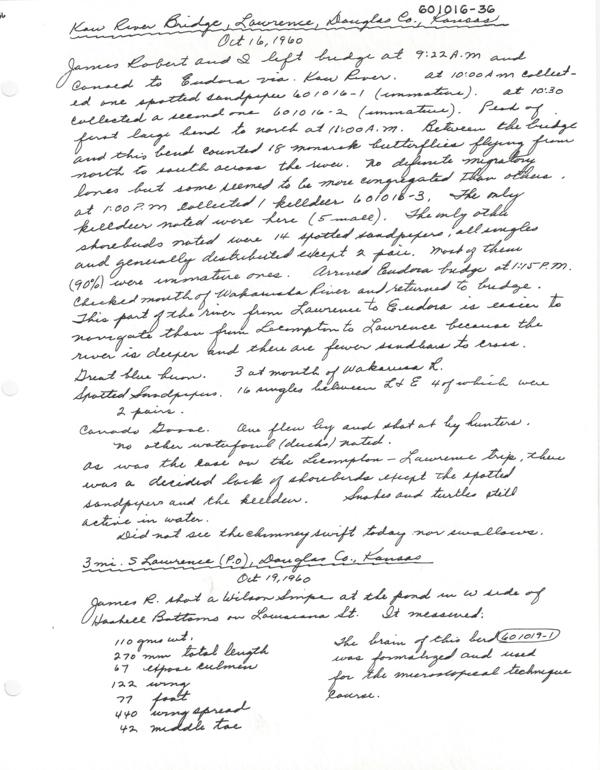 601016-36
Kaw River Bridge, Lawrence, Douglas Co., Kansas
Oct 16, 1960
James Robert and I left bridge at 9:22 A.M and
Canoed to Eudora via Kaw River. at 10:00 AM collect-
ed one spotted sandpiper 601016-1 (immature). at 10:30
collected a second one 601016-2 (immature). Peak of
first large bend to north at 11:00 A.M. Between the bridge
and this bend counted 18 monark butterflies flying from
north to south across the river. no definite migratory
lanes but some seemed to be more congregated than others.
at 1:00 P.M collected 1 killdeer 601016-3. The only
killdeer noted were here (5-mall). The only other
shorebirds noted were 14 spotted sandpipers, all singles
and generally distributed except 2 pair. Most of them
(90%) were immature ones. Arrived Eudora bridge at 1:15 P.M.
Checked mouth of Wakarusa River and returned to bridge.
This part of the river from Lawrence to Eudora is easier to
navigate than from Lecompton to Lawrence because the
river is deeper and there are fewer sandbars to cross.
Great blue heron. 3 at mouth of Wakarusa R.
Spotted Sandpipers. 16 singles between L & E 4 of which were
2 pairs.
Canada Goose. One flew by and shot at by hunters.
No other waterfowl (ducks) noted.
As was the case on the Lecompton - Lawrence trip, there
was a decided lack of shorebirds except the spotted
sandpipers and the killdeer. Snakes and turtles still
active in water.
Did not see the chimney swift today nor swallows.
3 mi. S Lawrence (P.O), Douglas Co., Kansas
Oct 19, 1960
James R. shot a Wilson Snipe at the pond in W side of
Haskell Bottoms on Louisiana St. It measured:
110 gms wt.
270 mm total length
67 expose culmen
122 wing
77 foot
440 wing spread
42 middle toe
The brain of this bird 601019-1
was formalized and used
for the microscopical technique
course.